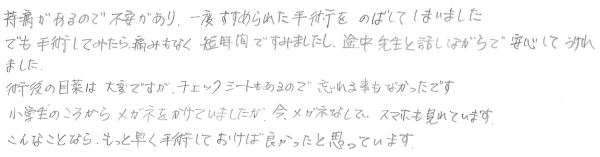 持病があるので不安があり、一度すすめられた手術をのばしてしまいました
でも手術してみたら、痛みもなく短時間ですみましたし、途中先生と話しながらで安心してうけれ
ました。
術後の目薬は大変ですが、チェックシートもあるので忘れる事もなかったです
小学生のころからメガネをかけていましたが、今、メガネなしで、スマホも見れています。
こんなことなら、もっと早く手術しておけば良かったと思っています。